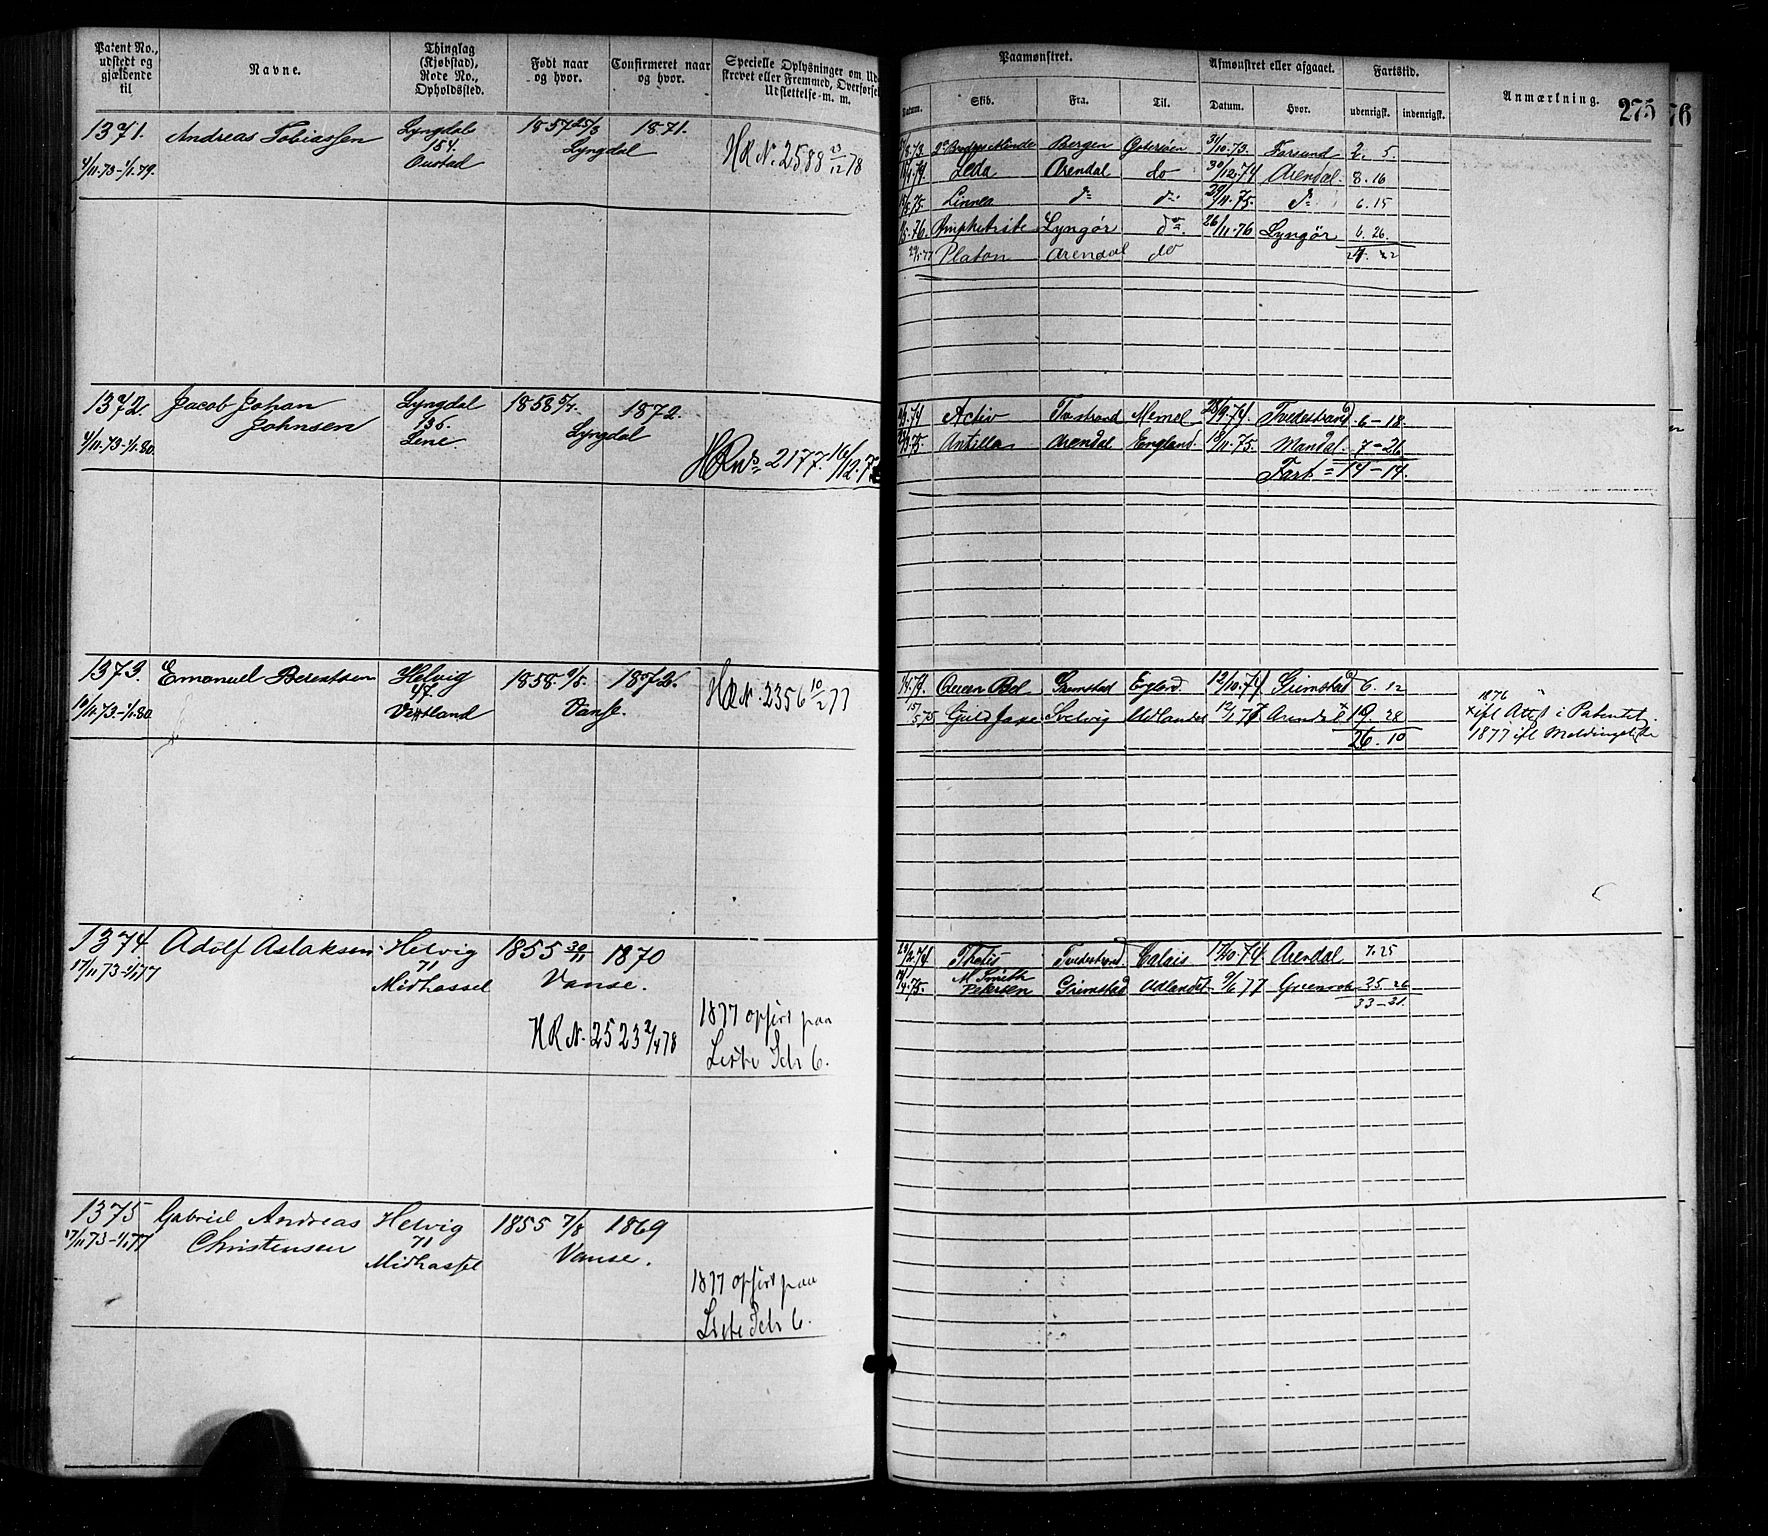 Patent No., udstedt og gjældende til
Navne.
Thinglag (Kjøbstad), Rode No., Opholdssted.
Født naar og hvor.
Confirmeret naar og hvor.
Specielle Oplysninger om Ud
skrevet eller Fremmed, Overførsel
Udslettelse m. m.
Paamønstret.
Datum.
Skib.
Fra.
Til.
Afmønstret eller afgaaet.
Datum.
Hvor.
Fartstid.
udenrigsk.
indenrigsk.
Anmærkning.
275
76
1371. Andreas Tobiassen Lyngdal 1857 25/3 1871.
4/11.73-1/1.79. 154. Lyngdal
HR N. 2588 23/12 78
Bergen Østersøen 31/10.73. Farsund 2. 5.
Leda Arendal do 30/12.74 Arendal 8.16
Linnea do do 29/11.75. do 6.15
Amphitrite Lyngør do 26/11.76 Lyngør 6.26.
29/5.77 Platon Arendal do
1372. Jacob Johan Johnsen Lyngdal 1858 1872.
4/11.73-1/1.80. 136. Lene. Lyngdal
HR No 2177. 16/12.75
Activ Memel 28/9.74 Tvedestrand 6-18.
Antilla Arendal England. Mandal. 7-26
Fart = 14-14.
1373. Emanuel Berentsen Helvig 1858. 1872.
10/11.73-1/1.80. 47. Vestland Vanse.
HR N. 2356 10/2 77
Queen Bel Grimstad England 12/10.74 Grimstad 6. 12
15/5.75 Guldfaxe Svelvig Udlandet Arendal x 19. 28
26.10
1876
x ifl Attest i Patentet.
1877 ifl
1374 Adolf Aslaksen Helvig 1855 30/11 1870
17/11 73-1/1 77 71 Midhassel Vanse.
HR N. 2523 2/4 78
1877 opført paa
Liste Sch 6.
Thetis Tvedestrand Calais 17/10.74 Arendal 7.25
M Smith Petersen Grimstad Udlandet 9/6 77 Greenock 35-26
1375 Gabriel Andreas Helvig 1855 7/8 1869
17/11 73-1/1 77 Christensen 71 Vanse.
Midhassel
1877 opført paa
Liste Sch 6.